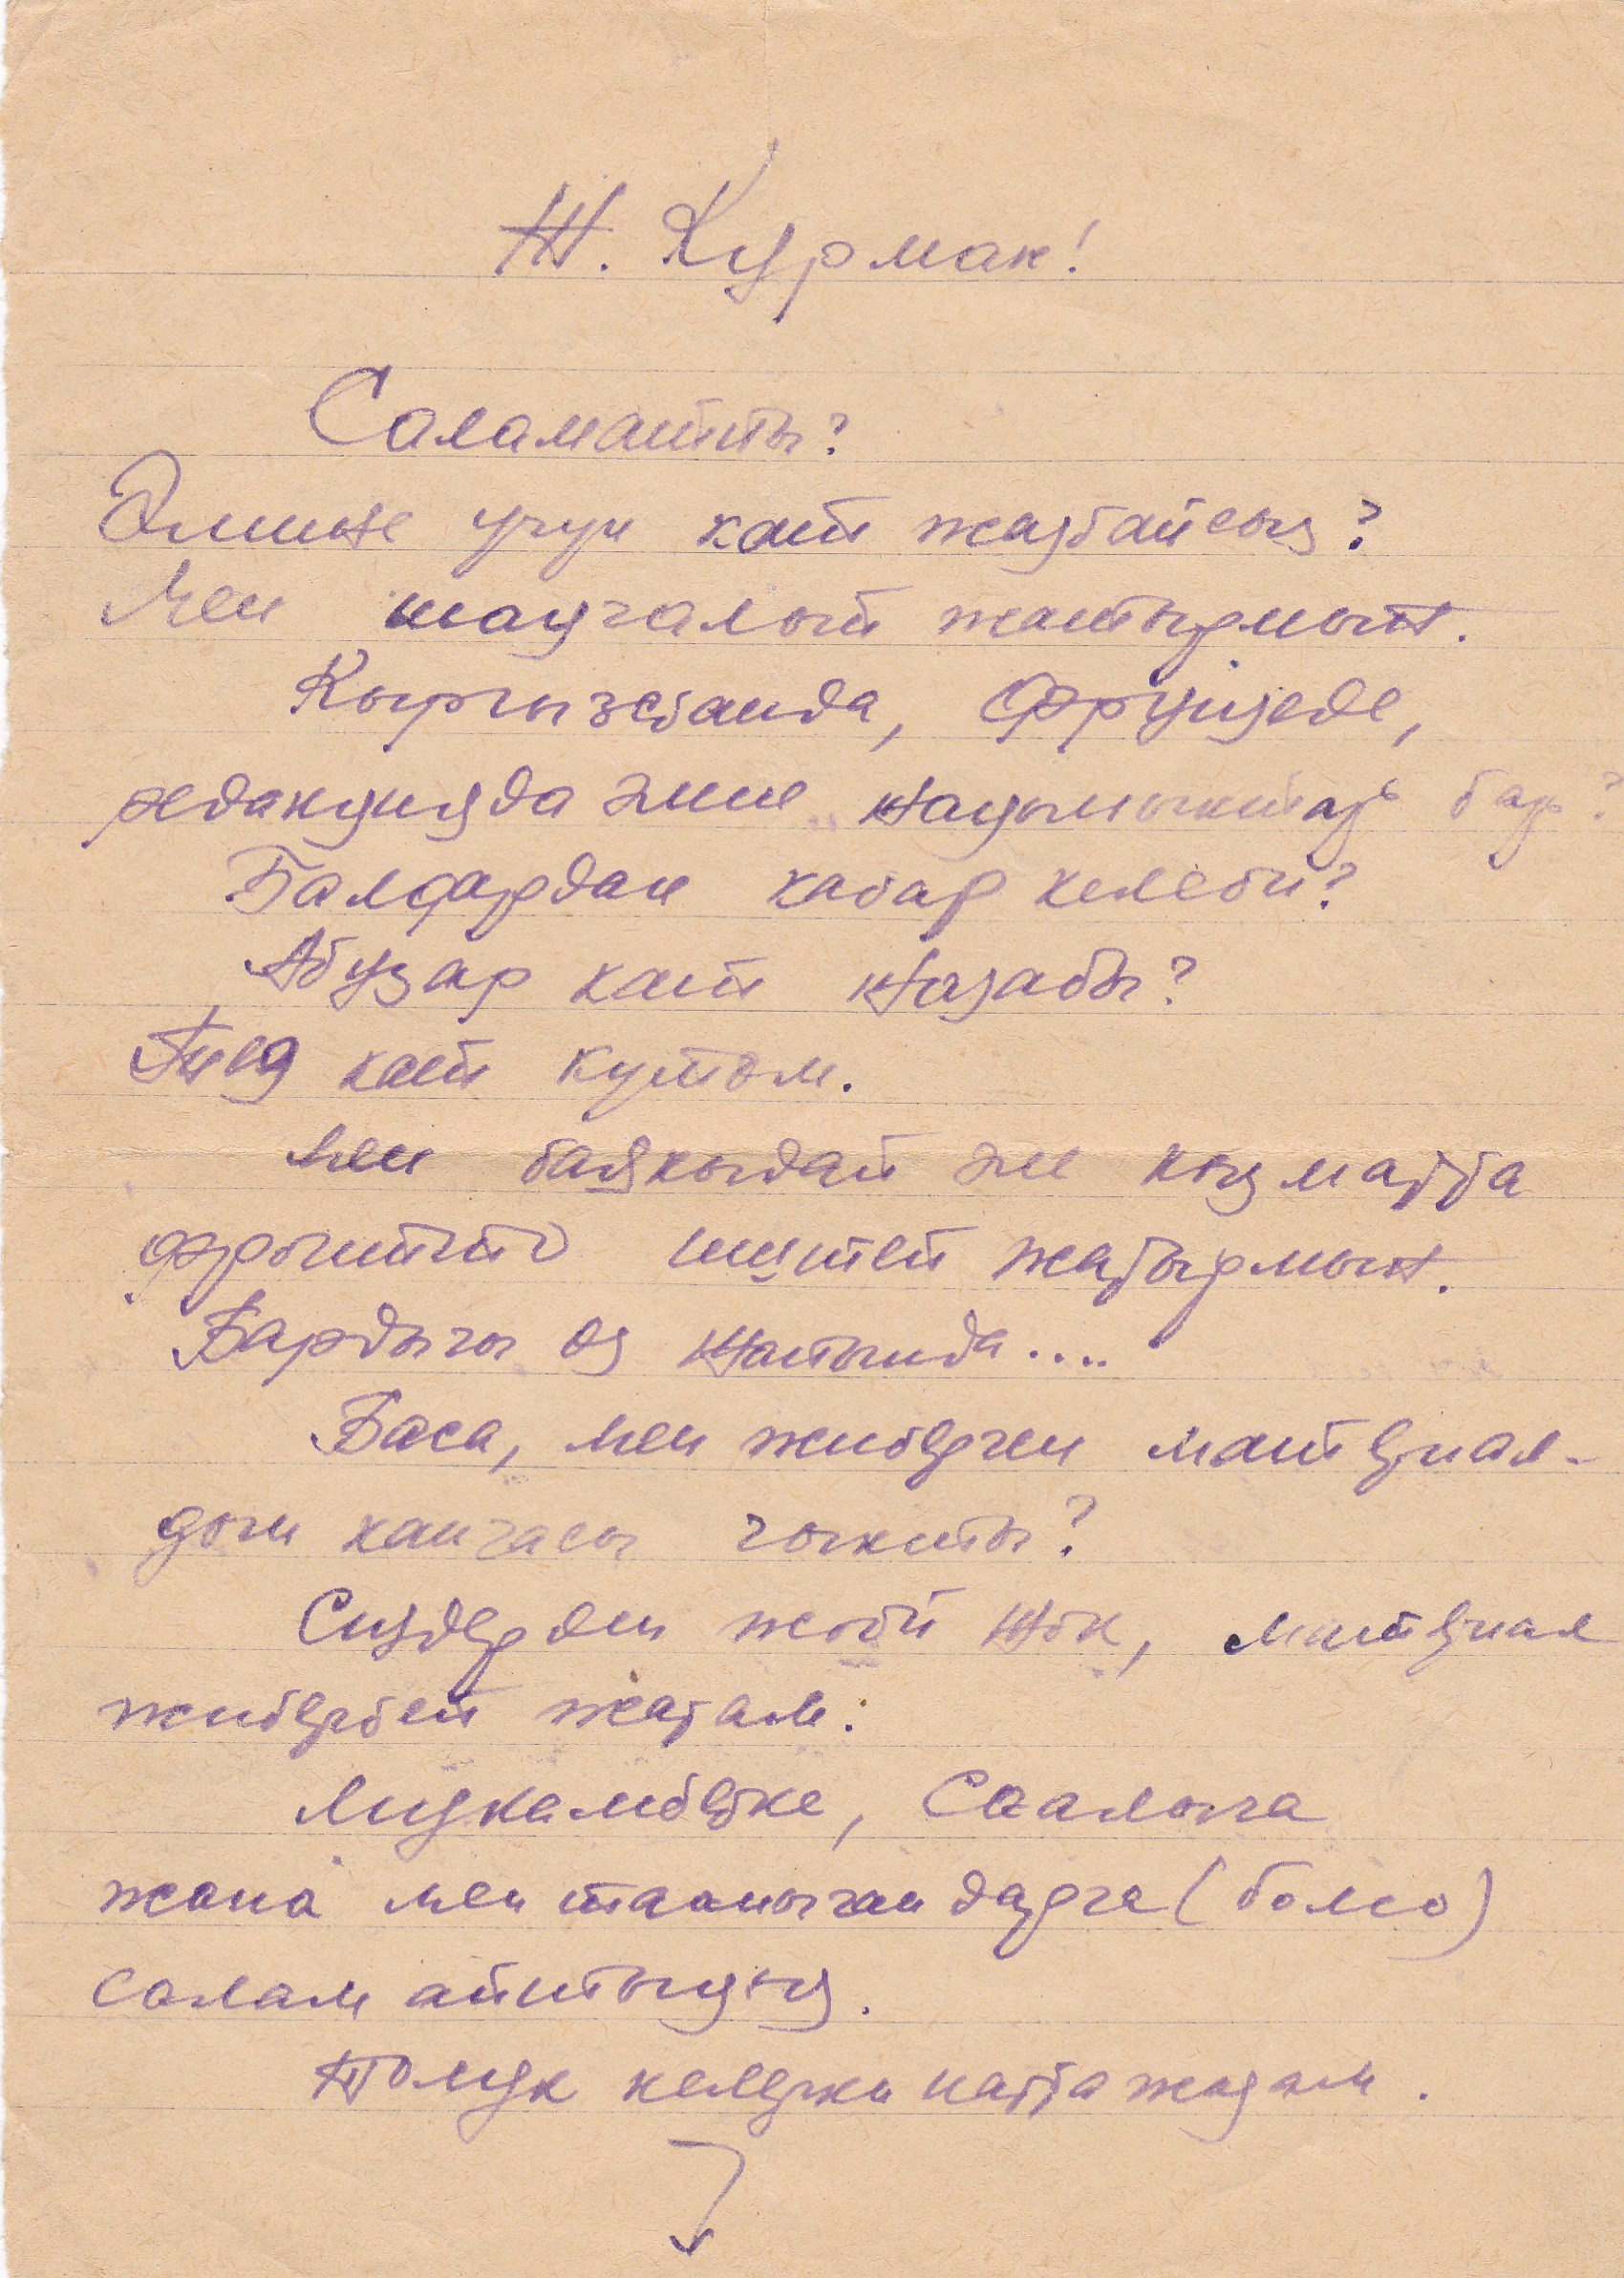 Ж. Курмак!
Саламатты?
Эмине үчүн кат жазбайсыз?
Мен таңгалып жатырмын.
Кыргызстанда, Фрунзеде,
редакцияда эмне жаңылыктар бар?
Балфардан кабар келеби?
Абузар кат жазабы?
Тез кат күтөм.
Мен баягыдай эле кызматта
фронтто иштеп жатырмын.
Бардыгы өз жатында....
Баса, мен жиберген матерал-
дын канчасы чыкты?
Сиздерден жооп жок, материал
жибербей жатам.
Мукамбетке, Саалыга
жана мен тааныгандарга (болсо)
салам айтыңыз.
Толук келерки катта жазам.